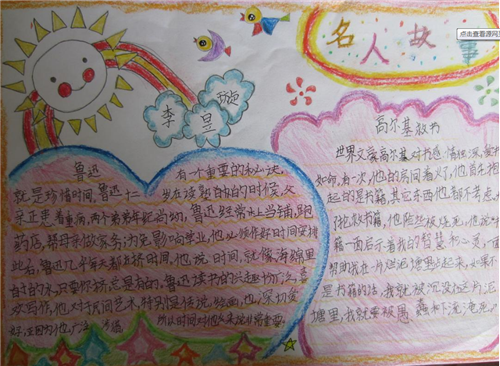 点击查看源网页
名人故
李昱璇
鲁迅
有一个重要的秘诀,
就是珍惜时间,鲁迅十二
岁在读
的时候,父
亲正患着重病,两个弟弟年纪尚幼,鲁迅经常上当铺,跑
药店,帮母亲做家务;为免影响学业,他必须作好时间安排
此后,鲁迅几乎每天都在挤时间,他说:时间,就像海绵里
的水,只要你挤,总是有的,鲁迅读书的兴趣
欢写作,他对于民间艺术,特别是传说、绘画,也深切爱
好,正因为他广泛涉猎,
所以时间对他来说
重要,
高尔基救书
世界文豪高尔基对书感情很深,爱书
如命,有一次,他的房间着火了,他首先抱
起的是书籍,其它东西他都不考虑,为
了抢救书籍,他险些被烧死,他说:书
籍一面启示着我的智慧和心灵,一面
帮助我在一片烂泥塘里站起来,如果不
是书籍的话,我就被沉没在这片泥
塘里,我就要被愚蠢和下流淹死。